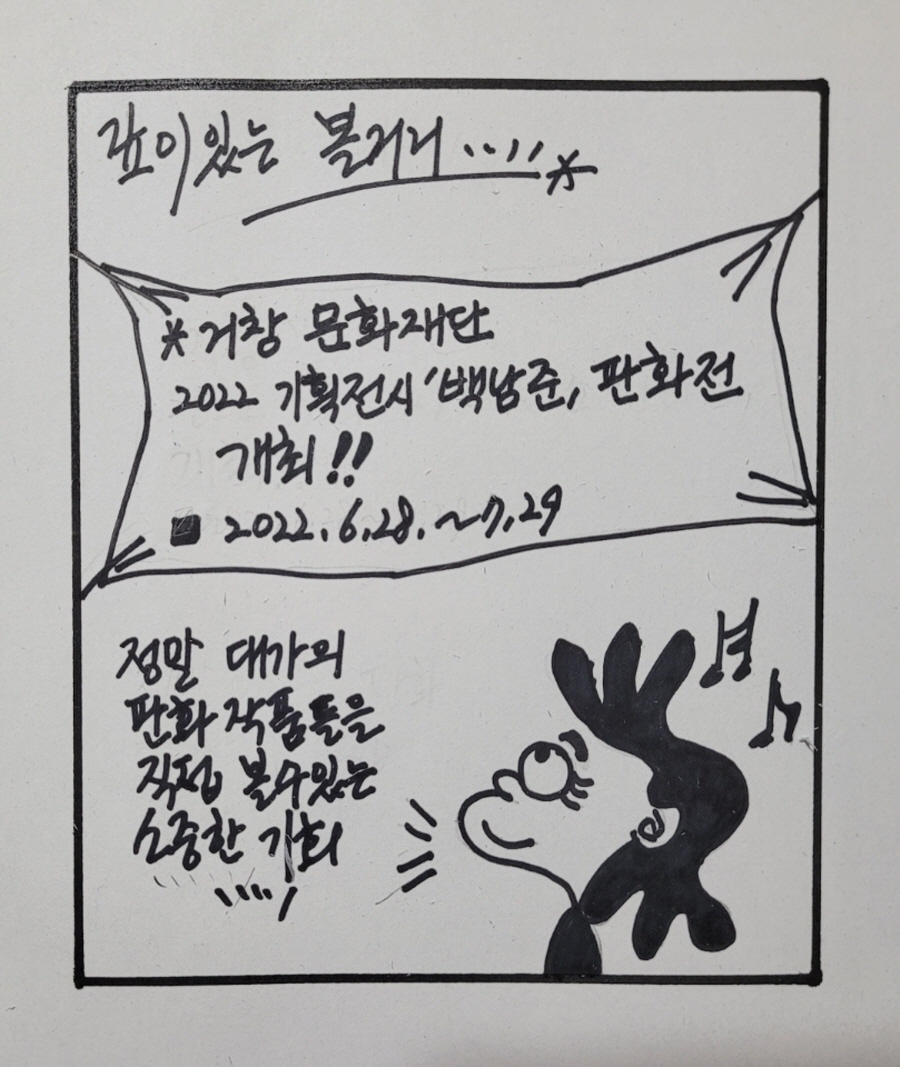 깊이있는 볼거리 .....*
* 거창 문화재단
2022 기획전시 '백남준, 판화전
개최!!
■ 2022.6.28.~7.29
정말 대가의
판화 작품들을
직접 볼수있는
소중한 기회
....,